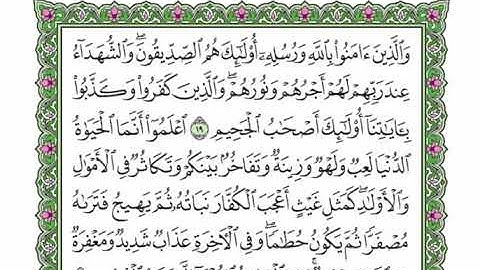 وَٱلَّذِينَ ءَامَنُوا۟ بِٱللَّهِ وَرُسُلِهِۦٓ أُو۟لَٰٓئِكَ هُمُ ٱلصِّدِّيقُونَ ۖ وَٱلشُّهَدَآءُ
عِندَ رَبِّهِمْ لَهُمْ أَجْرُهُمْ وَنُورُهُمْ ۖ وَٱلَّذِينَ كَفَرُوا۟ وَكَذَّبُوا۟
بِـَٔايَٰتِنَآ أُو۟لَٰٓئِكَ أَصْحَٰبُ ٱلْجَحِيمِ ١٩ ٱعْلَمُوٓا۟ أَنَّمَا ٱلْحَيَوٰةُ
ٱلدُّنْيَا لَعِبٌ وَلَهْوٌ وَزِينَةٌ وَتَفَاخُرٌۢ بَيْنَكُمْ وَتَكَاثُرٌ فِى ٱلْأَمْوَٰلِ
وَٱلْأَوْلَٰدِ ۖ كَمَثَلِ غَيْثٍ أَعْجَبَ ٱلْكُفَّارَ نَبَاتُهُۥ ثُمَّ يَهِيجُ فَتَرَىٰهُ
مُصْفَرًّا ثُمَّ يَكُونُ حُطَٰمًا ۖ وَفِى ٱلْءَاخِرَةِ عَذَابٌ شَدِيدٌ وَمَغْفِرَةٌ